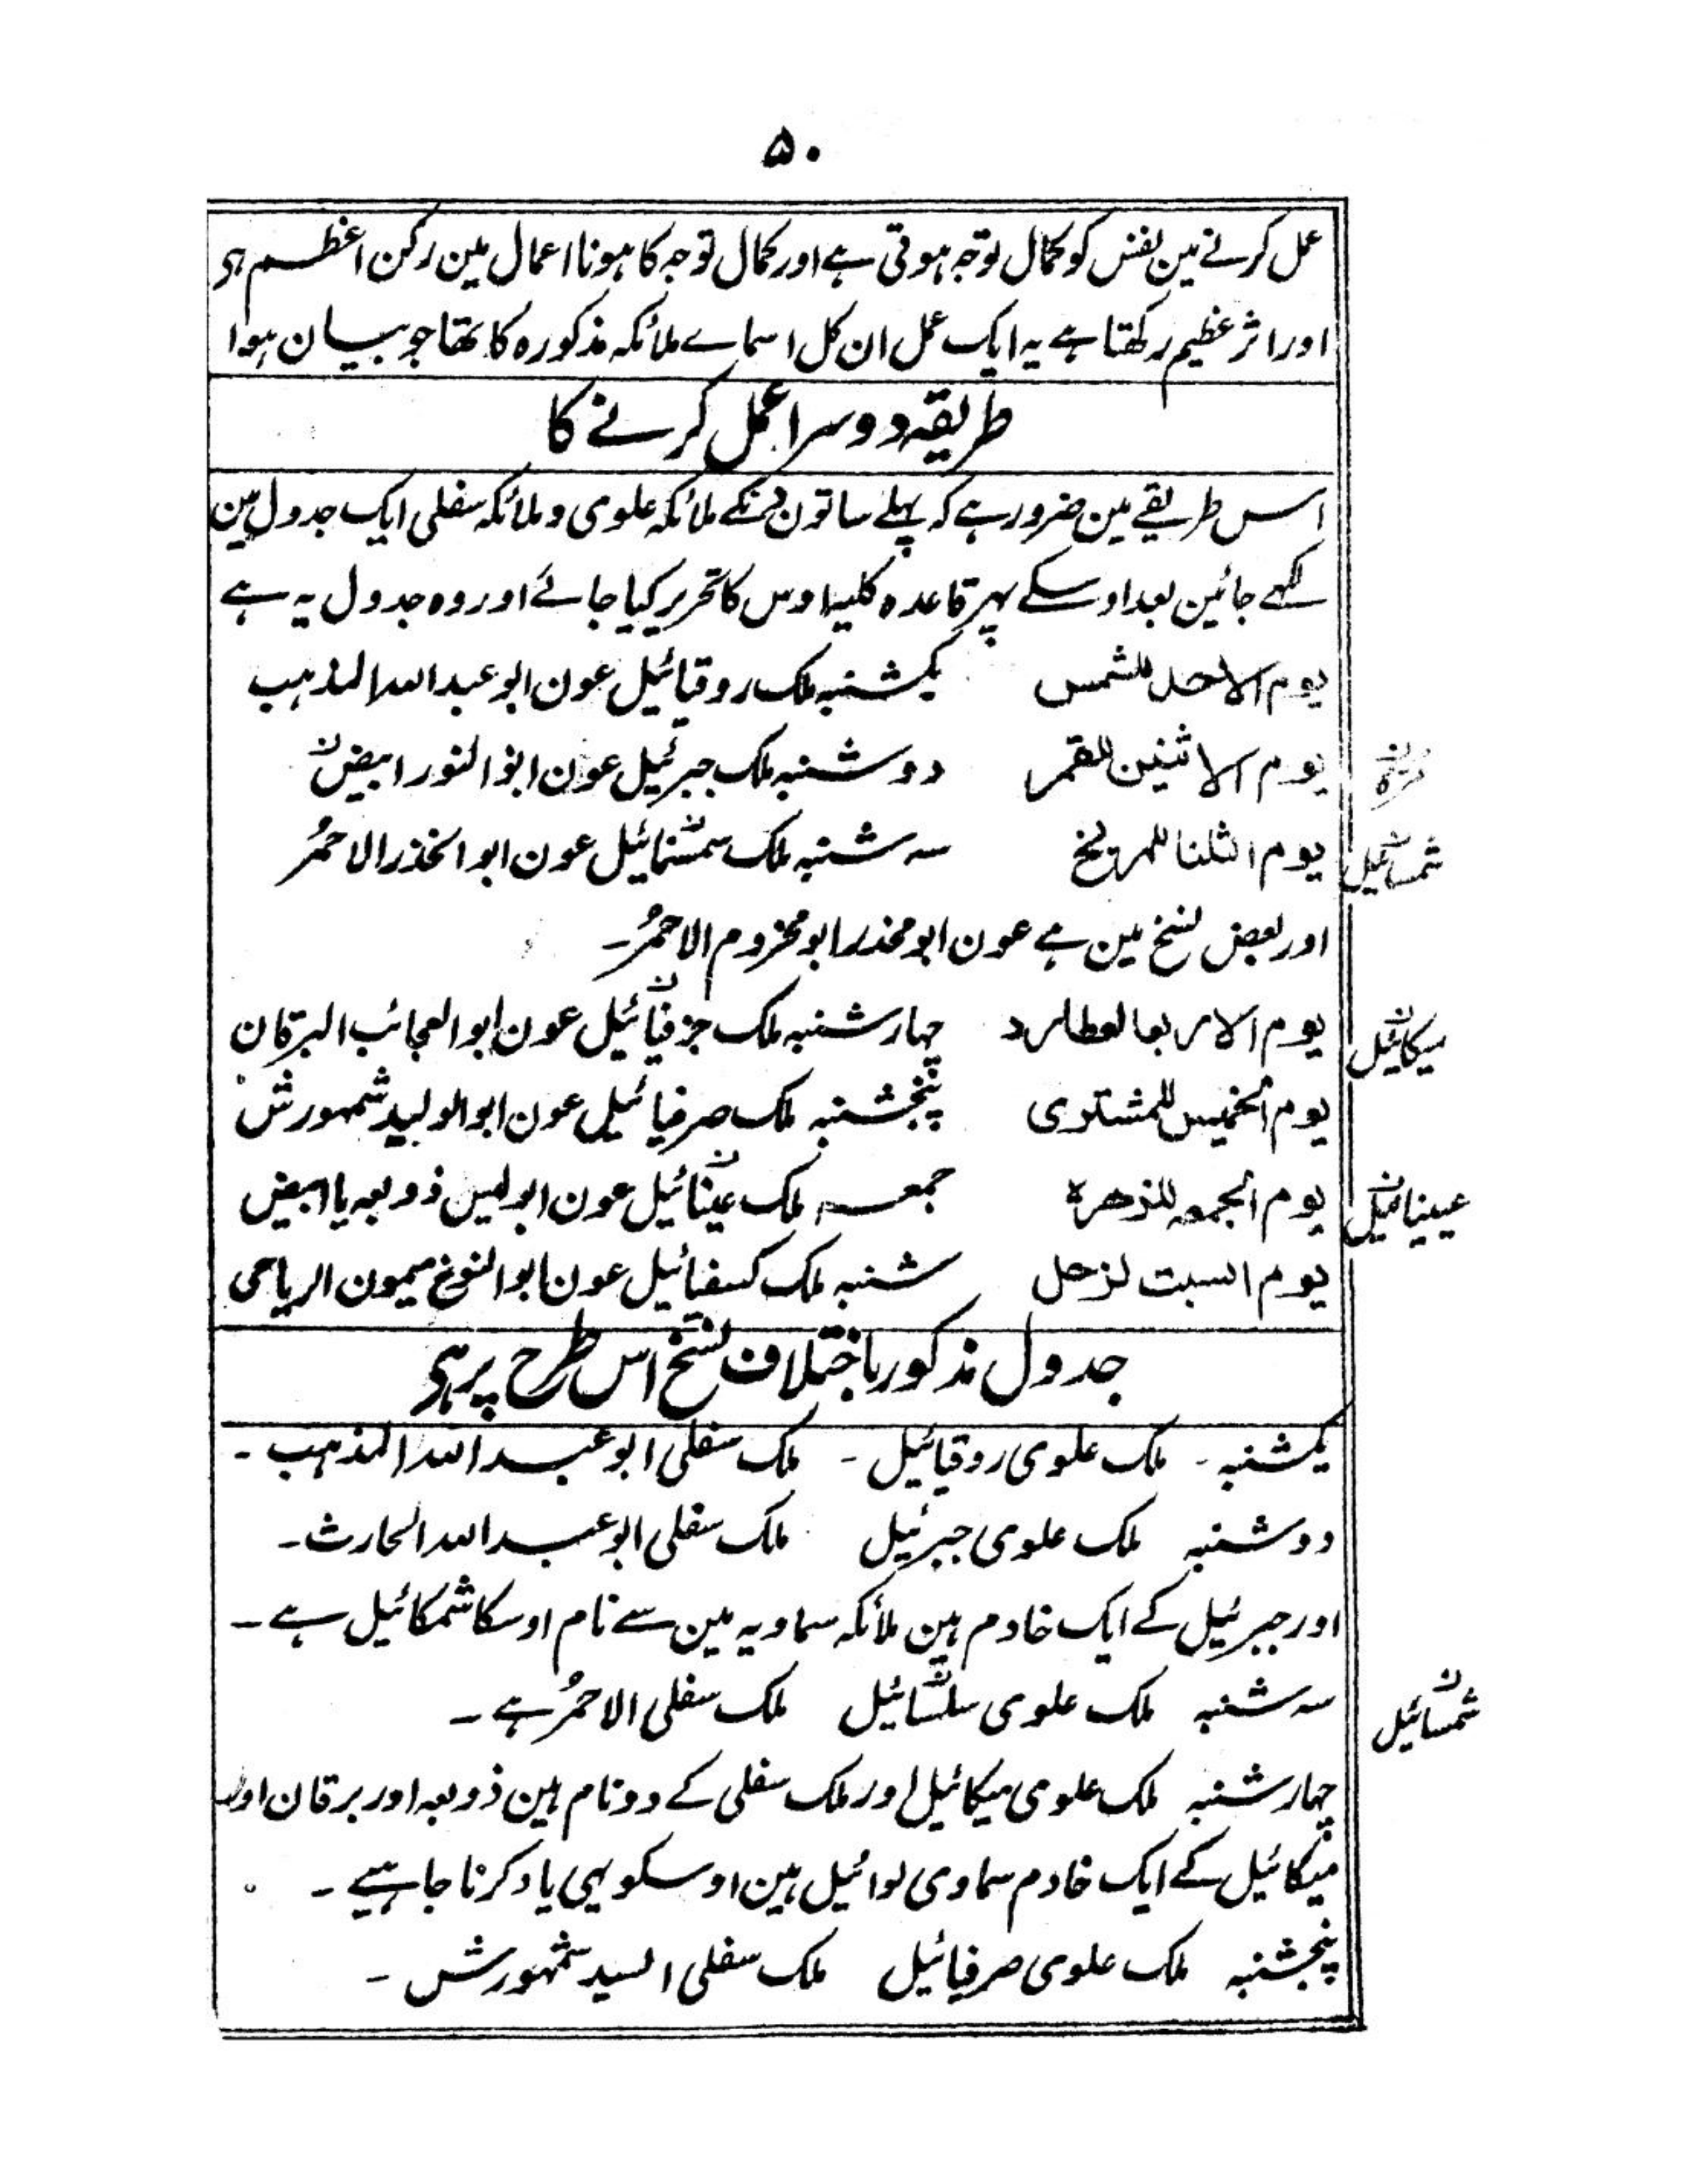 ۵۰
عمل کرنے مین نفس کو کمال توجہ ہوتی ہے اور کمال توجہ کا ہونا اعمال مین رکن اعظم ہی
اور اثر عظیم رکھتا ہے یہ ایک عمل ان کل اسماے ملائکہ مذکورہ کا تھا جو بیان ہوا
طریقہ دوسرا عمل کرنے کا
اس طریقے مین ضرور ہے کہ پہلے ساتون دنکے ملائکہ علوی و ملائکہ سفلی ایک جدول مین
لکہے جائین بعد اوسکے پہر قاعدہ کلیہ اوس کا تحریر کیا جائے اور وہ جدول یہ ہے
یوم الاحد للشمس یکشنبہ ملک روقیائیل عون ابو عبد اللہ المذہب
یوم الاثنین للقمر دوشنبہ ملک جبرئیل عون ابو النور ابیض ن
یوم الثلثا للمریخ سہ شنبہ ملک سمسمائیل عون ابو الخذر الاحمر
شمسائیل
اور بعض نسخ مین ہے عون ابو محذر ابو مخزوم الاحمر۔
یوم الاربعا لعطارد چہار شنبہ ملک جزقیائیل عون ابو العجائب البرقان
میکائیل ن
یوم الخمیس للمشتری پنجشنبہ ملک صرفیائیل عون ابو الولید شمہورش
یوم الجمعہ للزھرہ جمعہ ملک عینائیل عون ابولیس ذوبعہ یا ابیض
عیینائیل ن
یوم السبت لزحل شنبہ ملک کسفیائیل عون ابو النوخ میمون الریاحی
جدول مذکور باختلاف نسخ اس طرح پر ہی
یکشنبہ ۔ ملک علوی روقیائیل ۔ ملک سفلی ابو عبد اللہ المذہب ۔
دوشنبہ ملک علوی جبرئیل ملک سفلی ابو عبد اللہ الحارث ۔
اور جبرئیل کے ایک خادم ہین ملائکہ سماویہ مین سے نام اوسکا شمکائیل ہے ۔
سہ شنبہ ملک علوی سلسائیل ملک سفلی الاحمر ہے ۔
شمسائیل ن
چہار شنبہ ملک علوی میکائیل اور ملک سفلی کے دو نام ہین ذوبعہ اور برقان اور
میکائیل کے ایک خادم سماوی لوائیل ہین اوسکو بہی یاد کرنا چاہیے ۔
پنجشنبہ ملک علوی صرفیائیل ملک سفلی السید شمہورش ۔